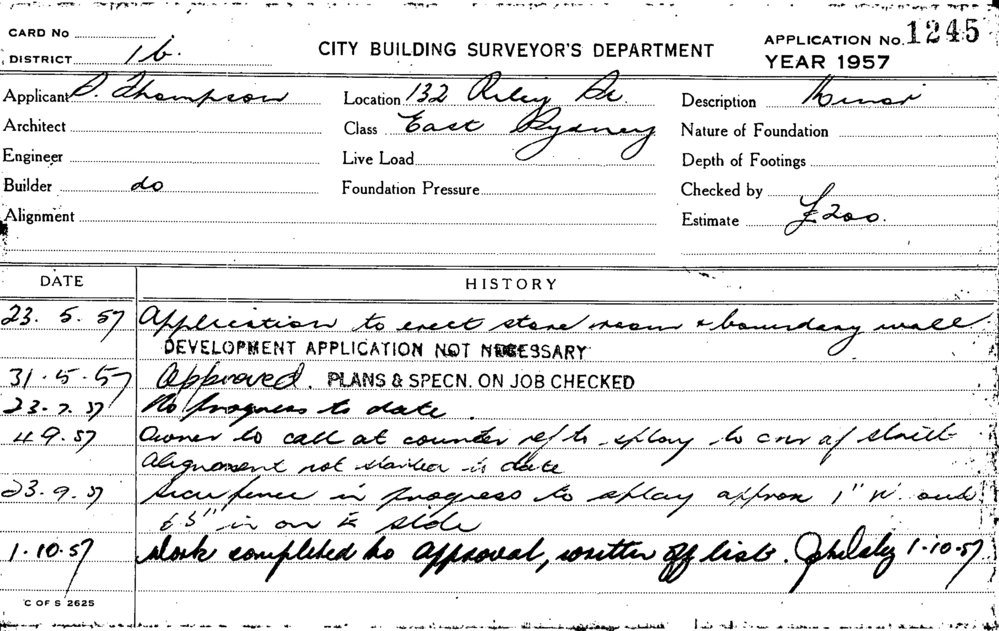 CARD No
DISTRICT 1b.
CITY BUILDING SURVEYOR'S DEPARTMENT
APPLICATION No. 1245
YEAR 1957
Applicant D. Thompson
Location 132 Riley St.
Description Minor
Architect
Class East Sydney
Nature of Foundation
Engineer
Live Load
Depth of Footings
Builder do
Foundation Pressure
Checked by
Alignment
Estimate £200.
DATE
HISTORY
23. 5. 57 Application to erect store room & boundary wall
DEVELOPMENT APPLICATION NOT NECESSARY
31. 5. 57 Approved. PLANS & SPECN. ON JOB CHECKED
23. 7. 57 No progress to date.
4 9. 57 Owner to call at counter ref to splay to cnr of street
alignment not started to date
23. 9. 57 fence in progress to splay approx 1" N. and
in on E side
1. 10. 57 Work completed to approval, written off list. 1. 10. 57
C OF S 2625